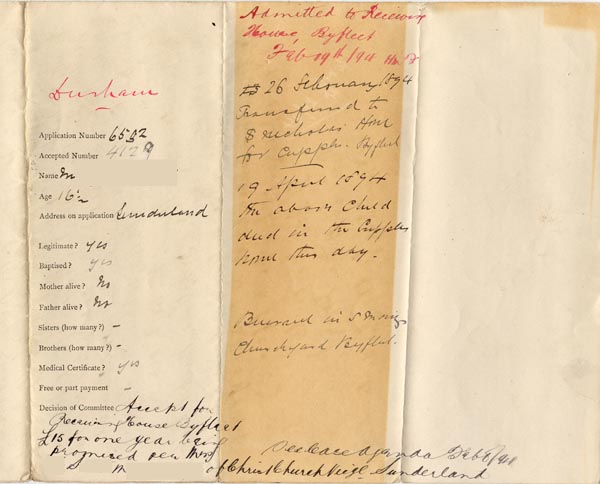 Durham
Application Number 6502
Accepted Number 4129
Name M
Age 16½
Address on application Sunderland
Legitimate? Yes
Baptised? Yes
Mother alive? No
Father alive? No
Sisters (how many?) –
Brothers (how many?) –
Medical Certificate? Yes
Free or part payment –
Decision of Committee Accept for
Receiving House Byfleet
£15 for one year being
promised per
M
of Christ Church Sunderland
Admitted to Receiving
House, Byfleet
Feb 19th/94
26 February 1894
Transferred to
S Nicholas Home
for Cripples. Byfleet
19 April 1894
the above Child
died in the Cripples
Home this day.
Buried in S Marys
Churchyard Byfleet.
See Case Agenda Feb 8/94